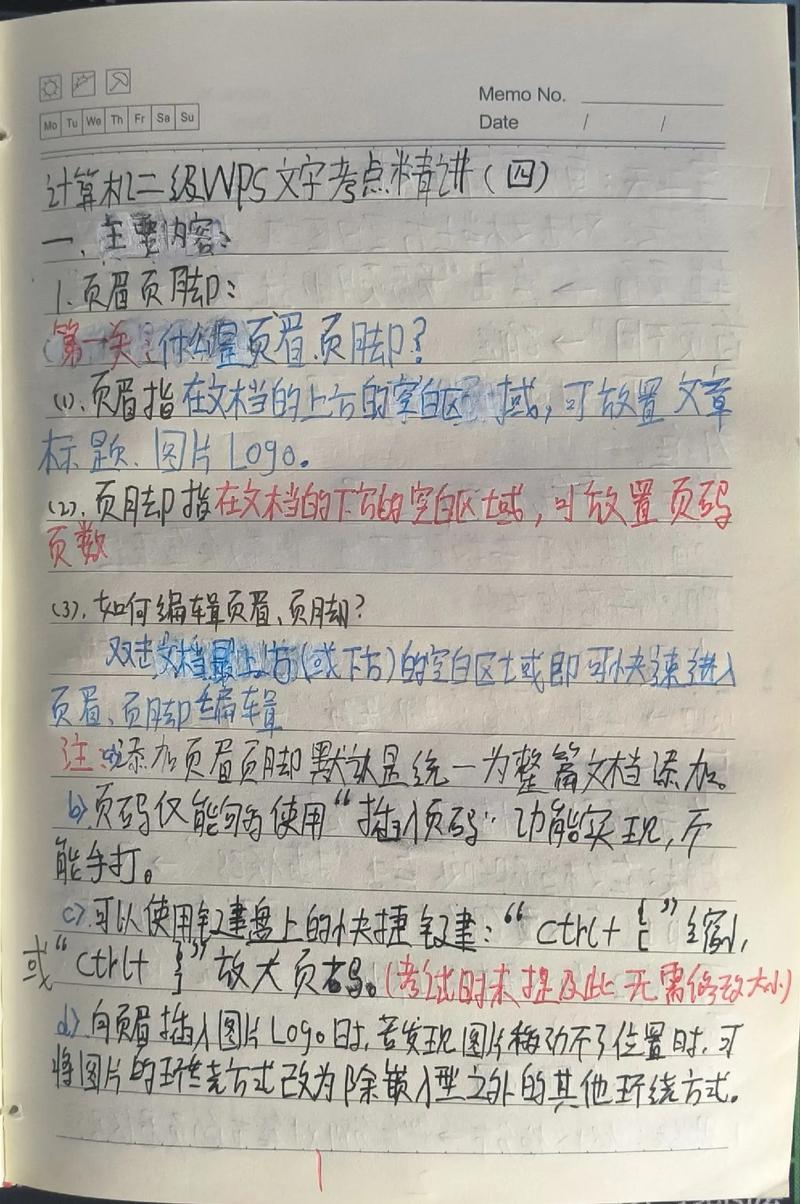 Memo No.
Mo Tu We Th Fr Sa Su
Date / /
计算机二级WPS文字考点精讲(四)
一、主要内容:
1.页眉页脚:
(第一关:什么是页眉、页脚?
(1).页眉指在文档的上方的空白区域,可放置文章
标题、图片Logo。
(2).页脚指在文档的下方的空白区域,可放置页码
页数
(3).如何编辑页眉、页脚?
双击文档最上方(或下方)的空白区域即可快速进入
页眉、页脚编辑
注:a)添加页眉页脚默认是统一为整篇文档添加。
b)页码仅能够使用“插入页码”功能实现,不
能手打。
c)可以使用键盘上的快捷键:“Ctrl+{[”缩小,
或“Ctrl+}]”放大页码。(考试时未提及此无需修改大小)
d)向页眉插入图片Logo时,若发现图片移动不了位置时,可
将图片的环绕方式改为除嵌入型之外的其他环绕方式。
1